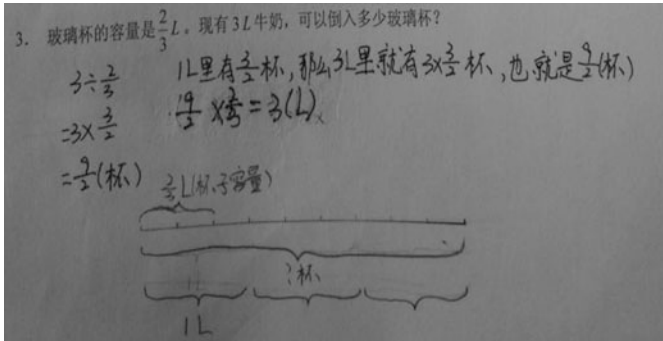 3. 玻璃杯的容量是2/3L。现有3L牛奶，可以倒入多少玻璃杯？
3÷2/3 1L里有3/2杯，那么3L里就有3×3/2杯，也就是9/2(杯)
=3×3/2 9/2×2/3=3(L)
=9/2(杯) 2/3L(杯子容量)
?杯
1L